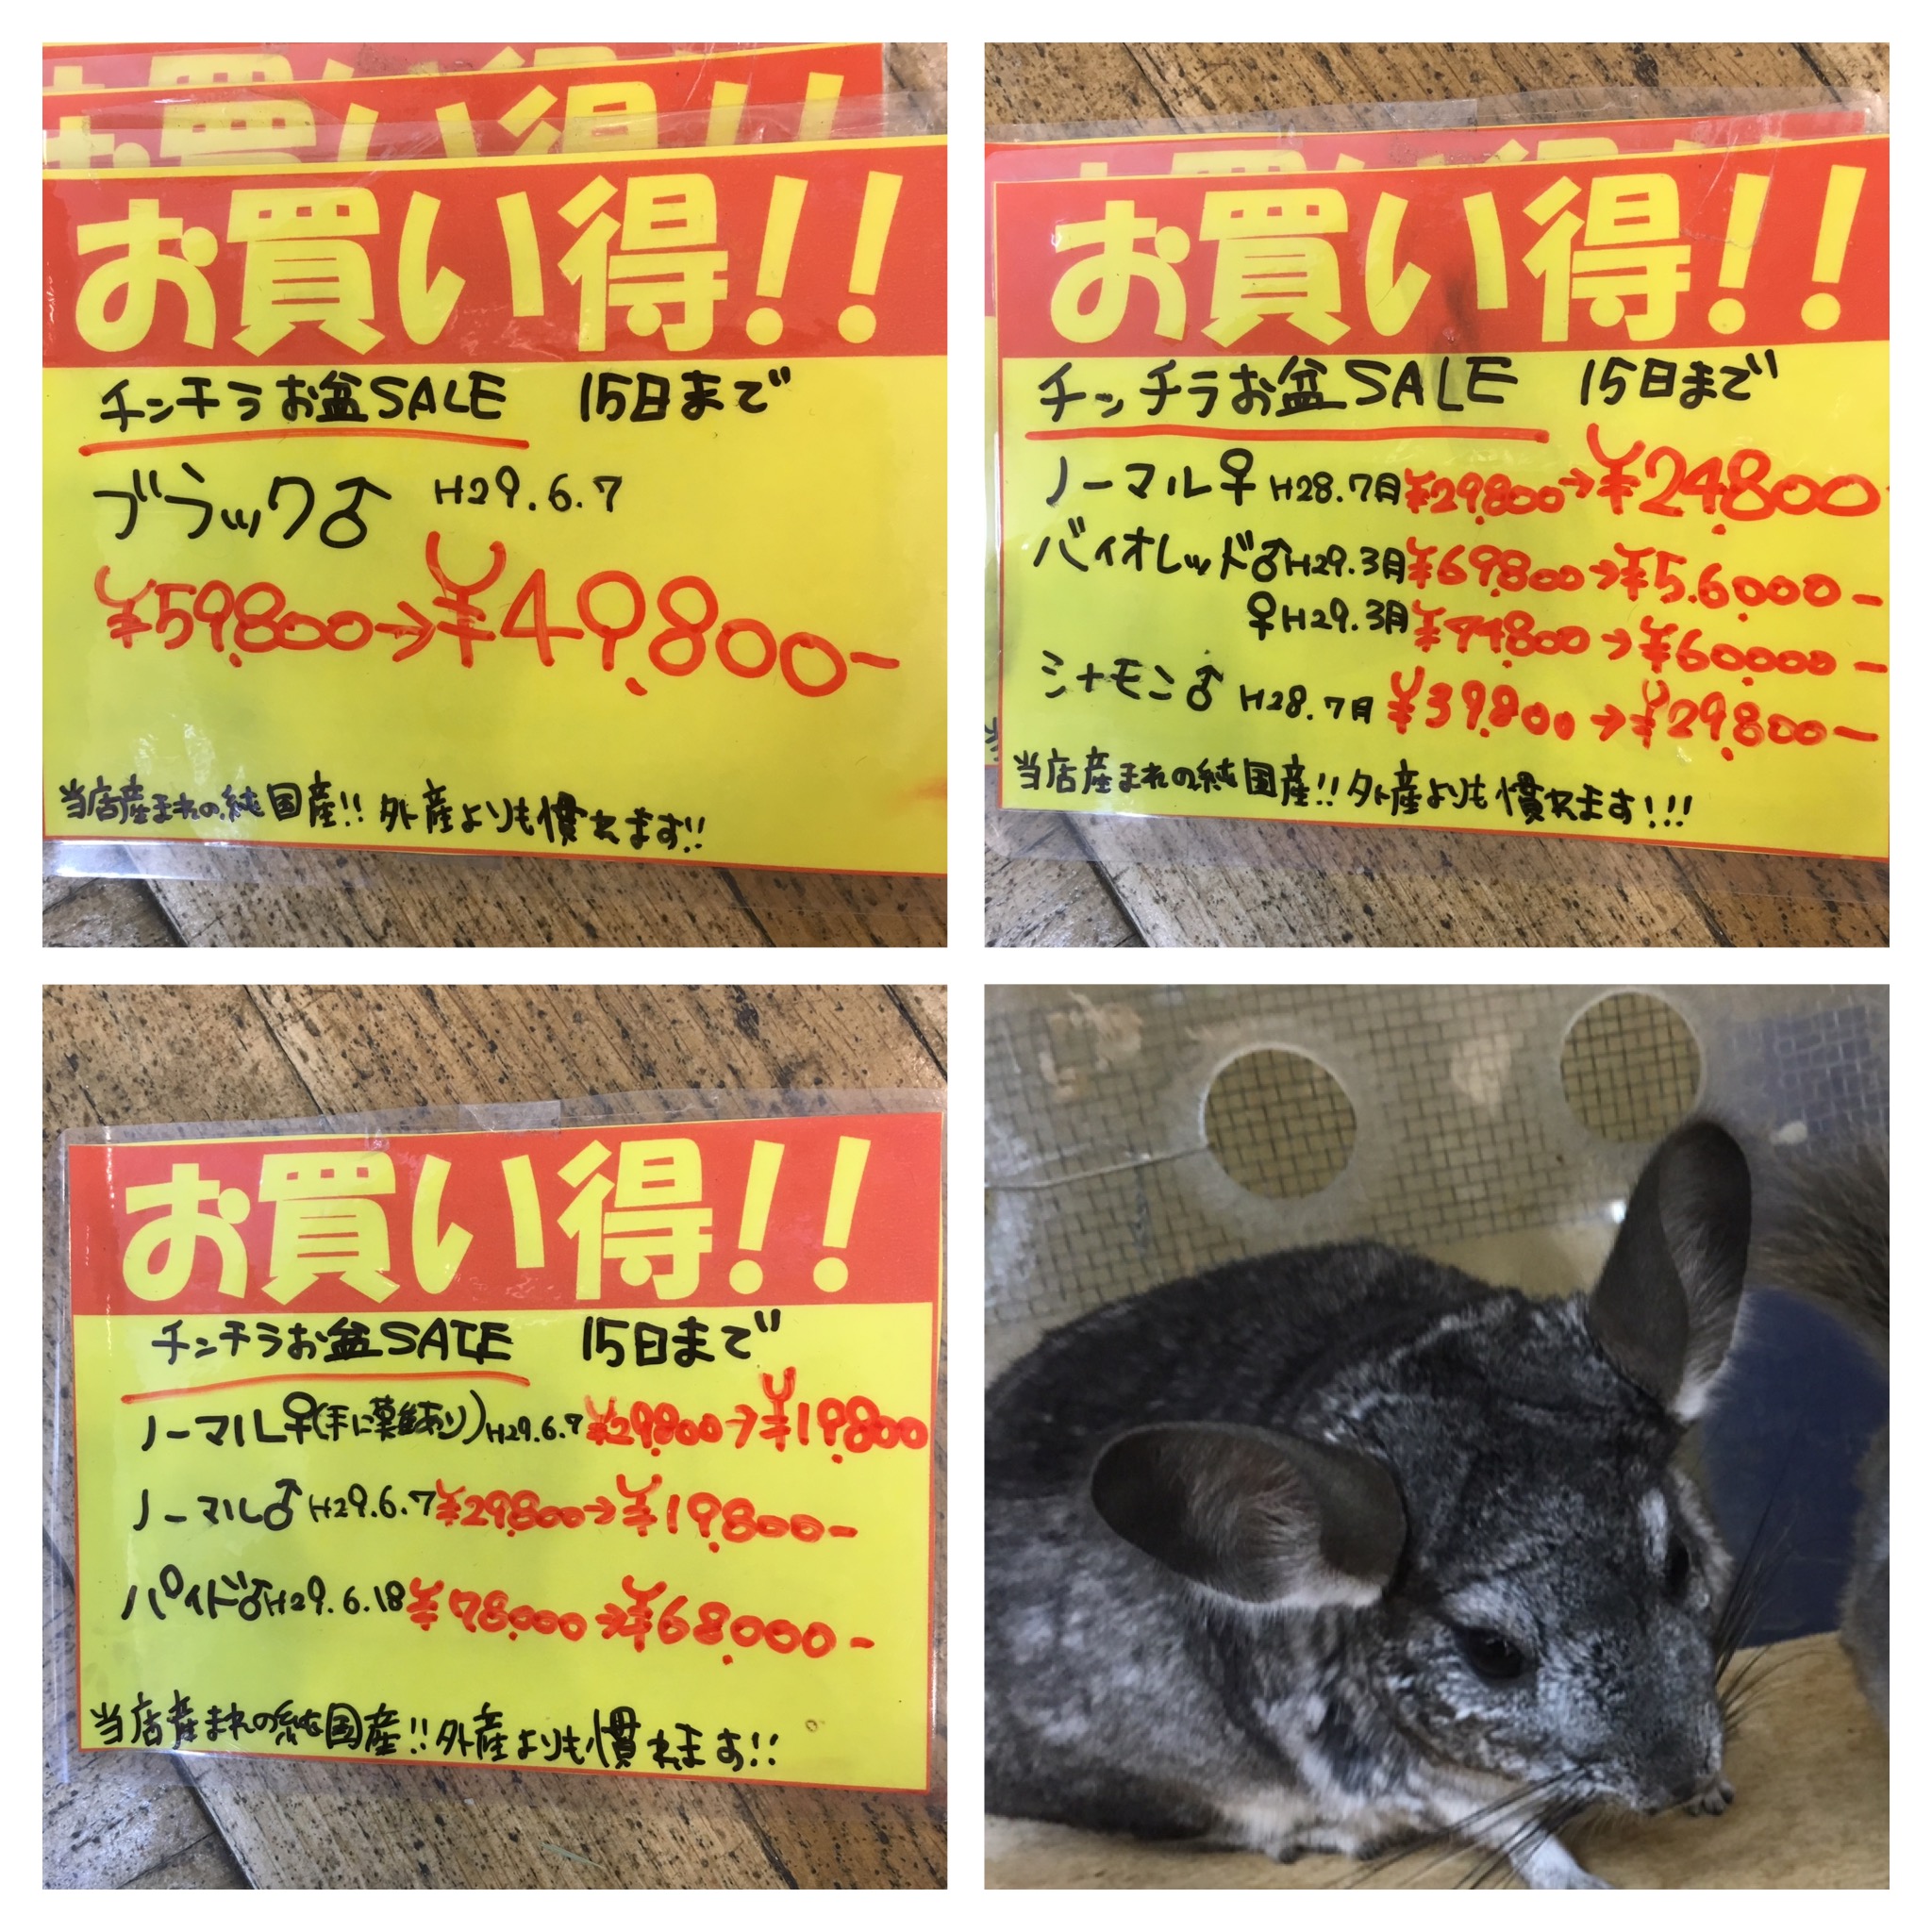 お買い得!!
お買い得!!
チンチラお盆SALE 15日まで
ブラック♂ H29.6.7
¥59.800→¥49.800-
当店産まれの純国産!! 外産よりも慣れます!!
お買い得!!
チンチラお盆SALE 15日まで
ノーマル♀ H28.7月 ¥29.800→¥24.800
バイオレッド♂H29.3月 ¥69.800→¥5.6.000-
♀H29.3月 →¥60.000-
シナモン♂ H28.7月 ¥39.800→¥29.800-
当店産まれの純国産!! 外産よりも慣れます!!!
お買い得!!
チンチラお盆SALE 15日まで
ノーマル♀(手に あり)H29.6.7 ¥29.800→¥19.800
ノーマル♂ H29.6.7 ¥29.800→¥19.800-
パイド♂H29.6.18 ¥78.000→¥68.000-
当店産まれの純国産!! 外産よりも慣れます!!